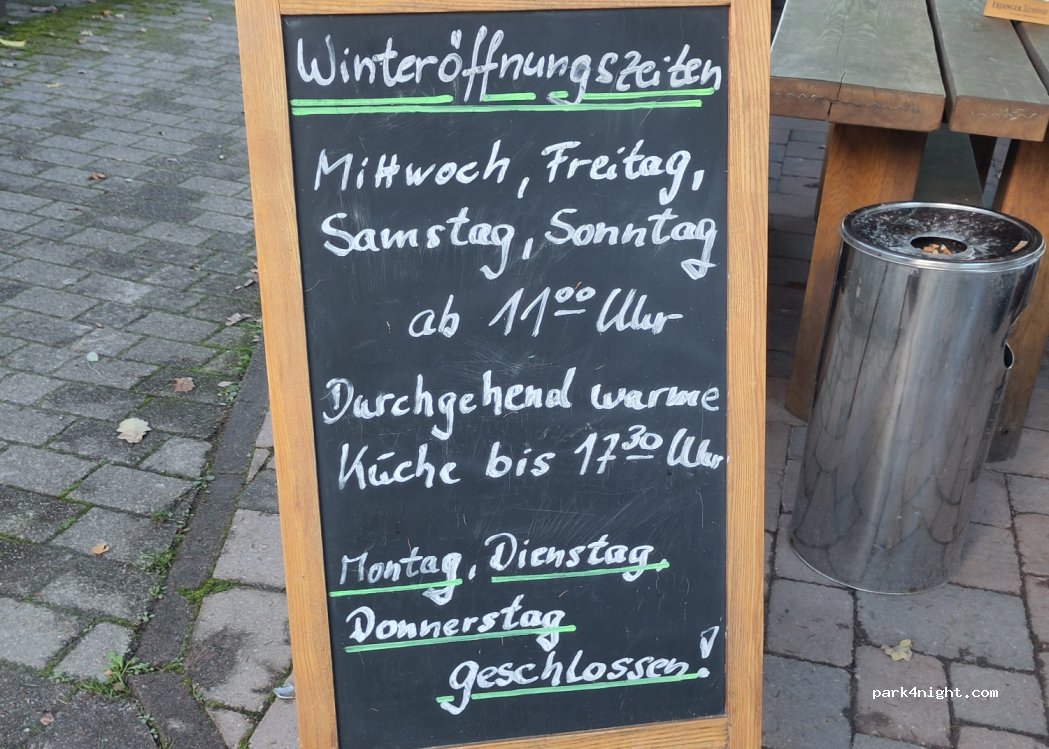 Winteröffnungszeiten
Mittwoch, Freitag,
Samstag, Sonntag
ab 11⁰⁰ Uhr
Durchgehend warme
Küche bis 17³⁰ Uhr
Montag, Dienstag,
Donnerstag
geschlossen!
park4night.com